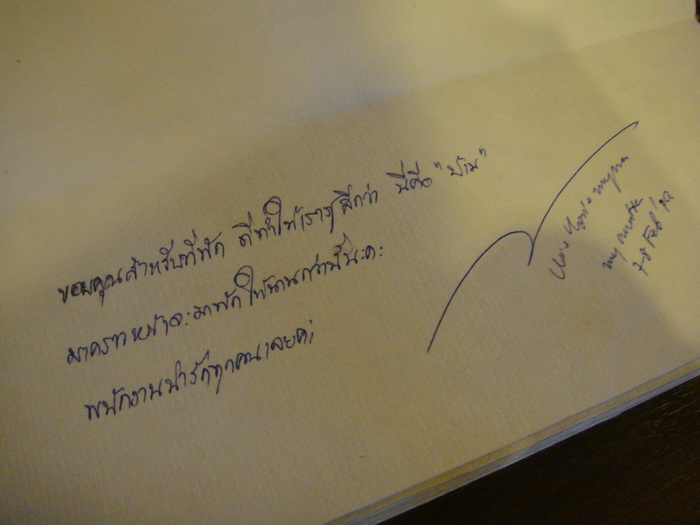 ขอบคุณสำหรับที่พัก ที่ทำให้เรารู้สึกว่า นี่คือ "บ้าน"
มาคราวหน้าจะมาพักให้นานกว่านี้นะคะ
พนักงานน่ารักทุกคนเลยค่ะ
7-8 Feb